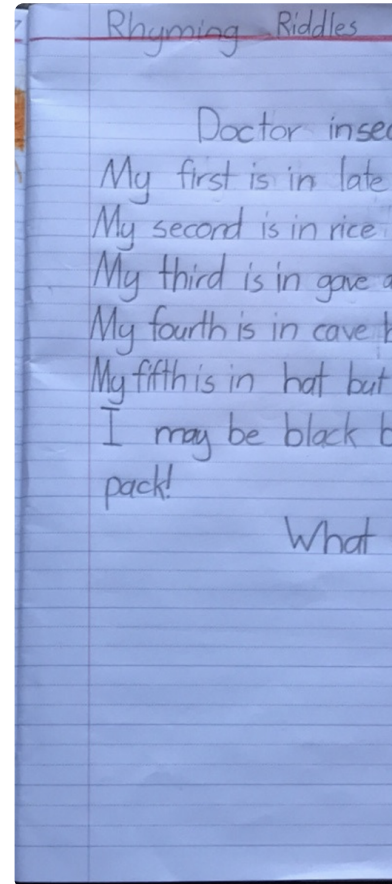 Rhyming Riddles
Doctor insec
My first is in late
My second is in rice
My third is in gave a
My fourth is in cave b
My fifth is in hat but
I may be black b
pack!
What